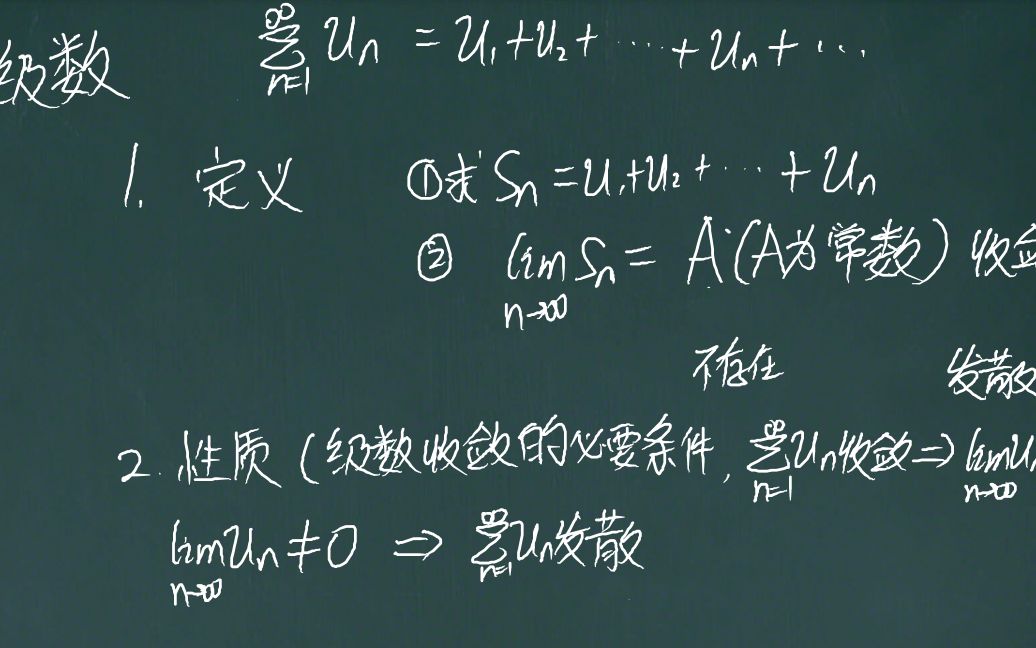 级数 ∑_{n=1}^{∞} u_n = u_1+u_2+⋯+u_n+⋯
1. 定义 ①求 S_n = u_1+u_2+⋯+u_n
② lim_{n→∞} S_n = A (A为常数) 收敛
不存在 发散
2. 性质 (级数收敛的必要条件, ∑_{n=1}^{∞} u_n 收敛 ⇒ lim_{n→∞} u
lim_{n→∞} u_n ≠ 0 ⇒ ∑_{n=1}^{∞} u_n 发散